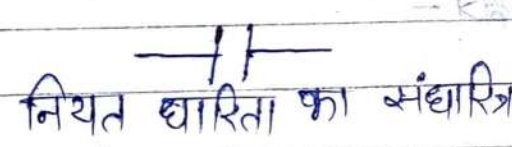 नियत धारिता का संधारित्र